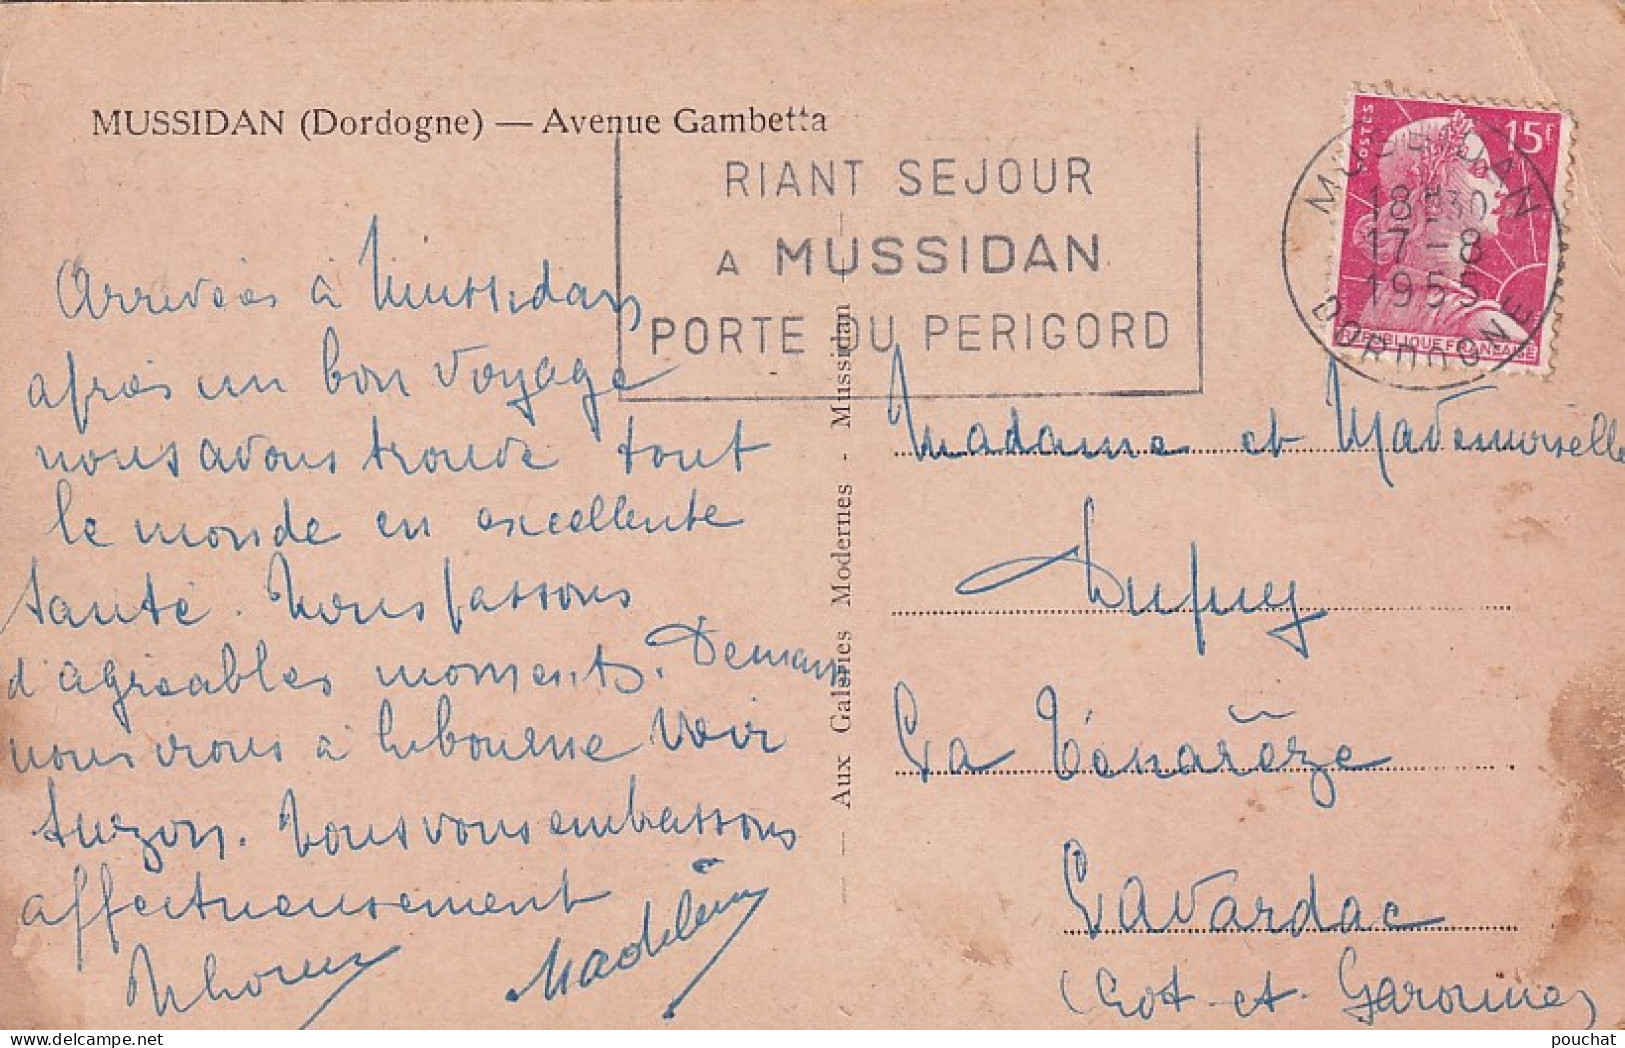 MUSSIDAN (Dordogne) — Avenue Gambetta
RIANT SEJOUR
A MUSSIDAN
PORTE DU PERIGORD
POSTES
15F
REPUBLIQUE FRANÇAISE
MUSSIDAN
18H30
17-8
1955
DORDOGNE
Arrivées à Mussidan
après un bon voyage
nous avons trouvé tout
le monde en excellente
santé. Nous passons
d'agréables moments. Demain
nous irons à Libourne voir
Suzon. Nous vous embrassons
affectueusement
Madeleine
— Aux Galeries Modernes - Mussidan —
Madame et Mademoiselle
Dupuy
La Ténarèze
Lavardac
(Lot-et-Garonne)
pouchat